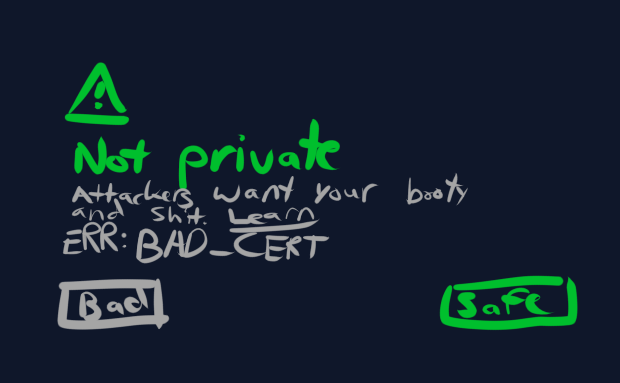 !
Not private
Attackers want your booty
and shit. Learn
ERR: BAD_CERT
Bad
Safe